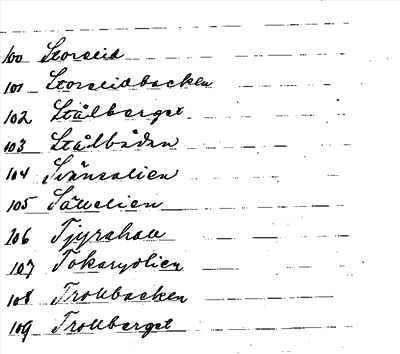 100 Storseid
101 Storseidbacken
102 Stålberget
103 Stålbådan
104 Svänsalien
105 Sättelien
106 Tjyrahall
107
108 Trollbacken
109 Trollberget